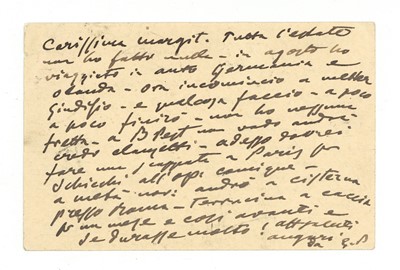 Carissima Margit. Tutta l'estate
non ho fatto nulla - in agosto ho
viaggiato in auto Germania e
Olanda - ora incomincio a metter
giudizio - e qualcosa faccio - a poco
a poco finirò - non ho nessuna
fretta - a B Pest non vado andrà
credo Clausetti - adesso dovrei
fare una scappata a Parigi per
Schicchi all'op: comique -
a metà nov: andrò a Cisterna
presso Roma - Terracina a caccia
per un mese e così avanti e
se durasse molto! affettuosi
auguri
da G. P